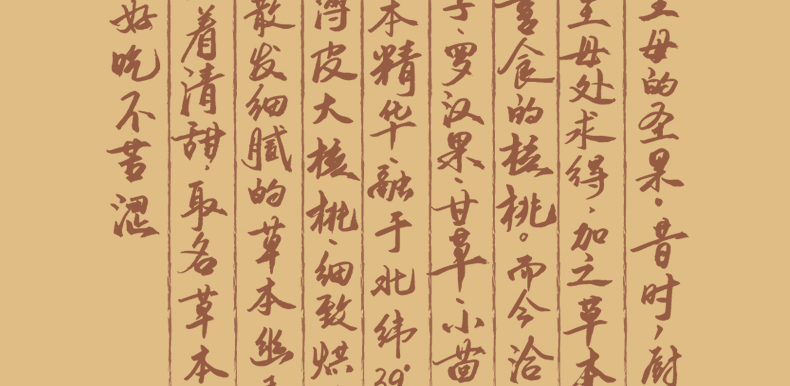 母的圣果。昔时,厨
母处求得,加之草本
食的核桃。而今洽
、罗汉果、甘草、小茴
本精华,融于北纬39°
薄皮大核桃,细致烘
散发细腻的草本幽
着清甜,取名草本
好吃不苦涩